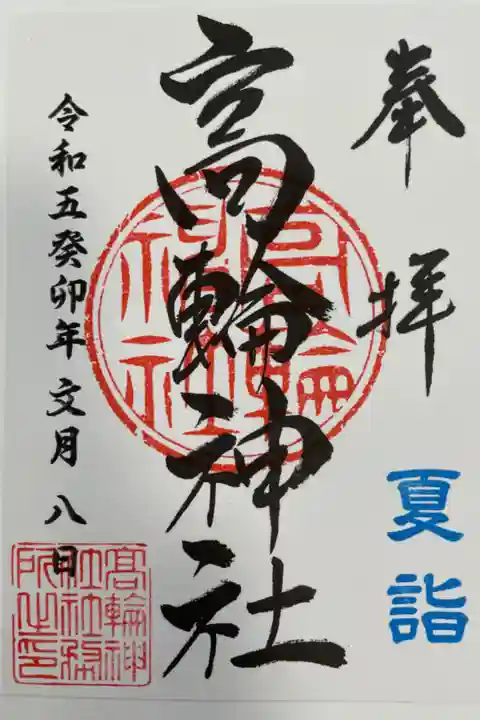 奉拝
夏詣
高輪神社
高輪神社
令和五癸卯年 文月 八日
高輪神社社務所之印